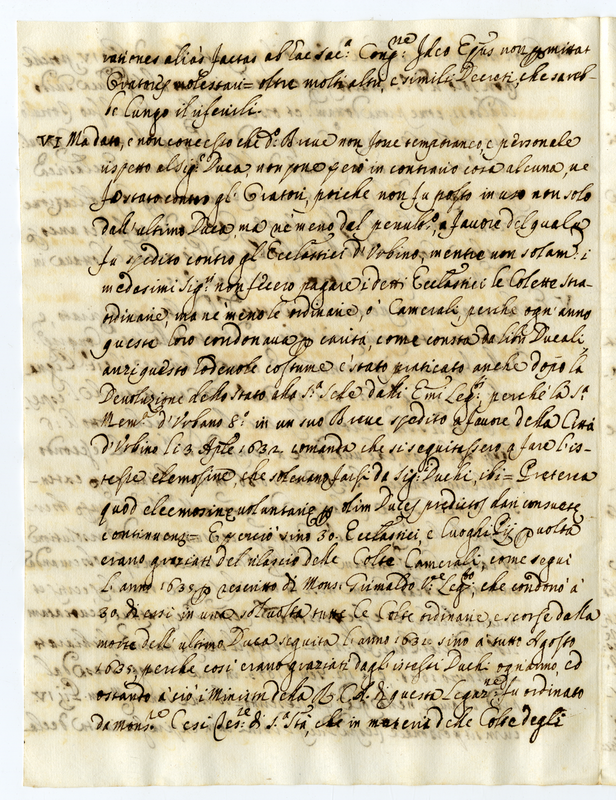 rationes aliàs factas ab hac sac.ª Cong.ne: Ideo Eius non permittat
Oratores molestari = oltre molti altri, e simili Decreti, che sareb-
be lungo il riferirli.
VI Ma dato, e non concesso che d.º Breve non fosse temporaneo, e personale
rispetto al Sig.r Duca, non pone però in contrario cosa alcuna, ne
fù stato contro gl'Oratori, poiche non fu posto in uso non solo
dall'ultimo Duca, ma ne meno dal penult.º, a favore del quale
fu spedito contro gl'Ecclesiastici d'Urbino, mentre non solam.te i
medesimi Sig.ri non fecero pagare i detti Ecclesiastici le Colette stra-
ordinarie, ma ne meno le ordinarie, ò Camerali, perche ogn'anno
queste loro condonava p carità, come consta da libri Ducali,
anzi questo lodevole costume è stato praticato anche dopo la
Devoluzione dello Stato alla S.ta Sede dalli Em.i Leg.ti, perche la S.ta
Mem.ª d'Urbano 8.º in un suo Breve spedito a favore della Città
d'Urbino li 3 Aple 1632 comanda che si seguitassero a fare l'is-
tesse elemosine, che solevano farsi da Sig.ri Duchi, ibi = Preterea
quod eleemosine voluntarie p olim Duces predictos dari consuete
continuentur = E perciò sino 30. Ecclesiastici, e luoghi Pij p volta
erano graziati del rilascio delle Colte Camerali, come segui
l'anno 1635 p rescritto di Mons.r Grimaldo V.e Leg.to, che condonò à
30. di essi in una sol volta tutte le Colte ordinarie, e scorse dalla
morte dell'ultimo Duca seguita l'anno 1631 sino a tutto Agosto
1635 perche così erano graziati dagli istessi Duchi ogn'anno ed
ostando a ciò i Ministri della R. C. di questa Legaz.ne fu ordinato
da Mons.re Cesi Tes.re di S. Stà, che in materia delle Colte degli